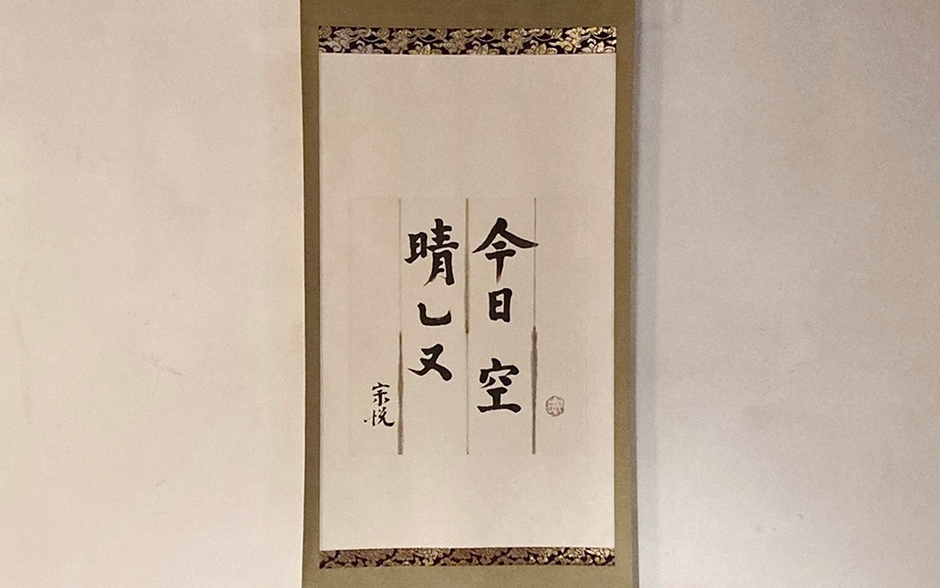 今日 空
晴し又
宗悦